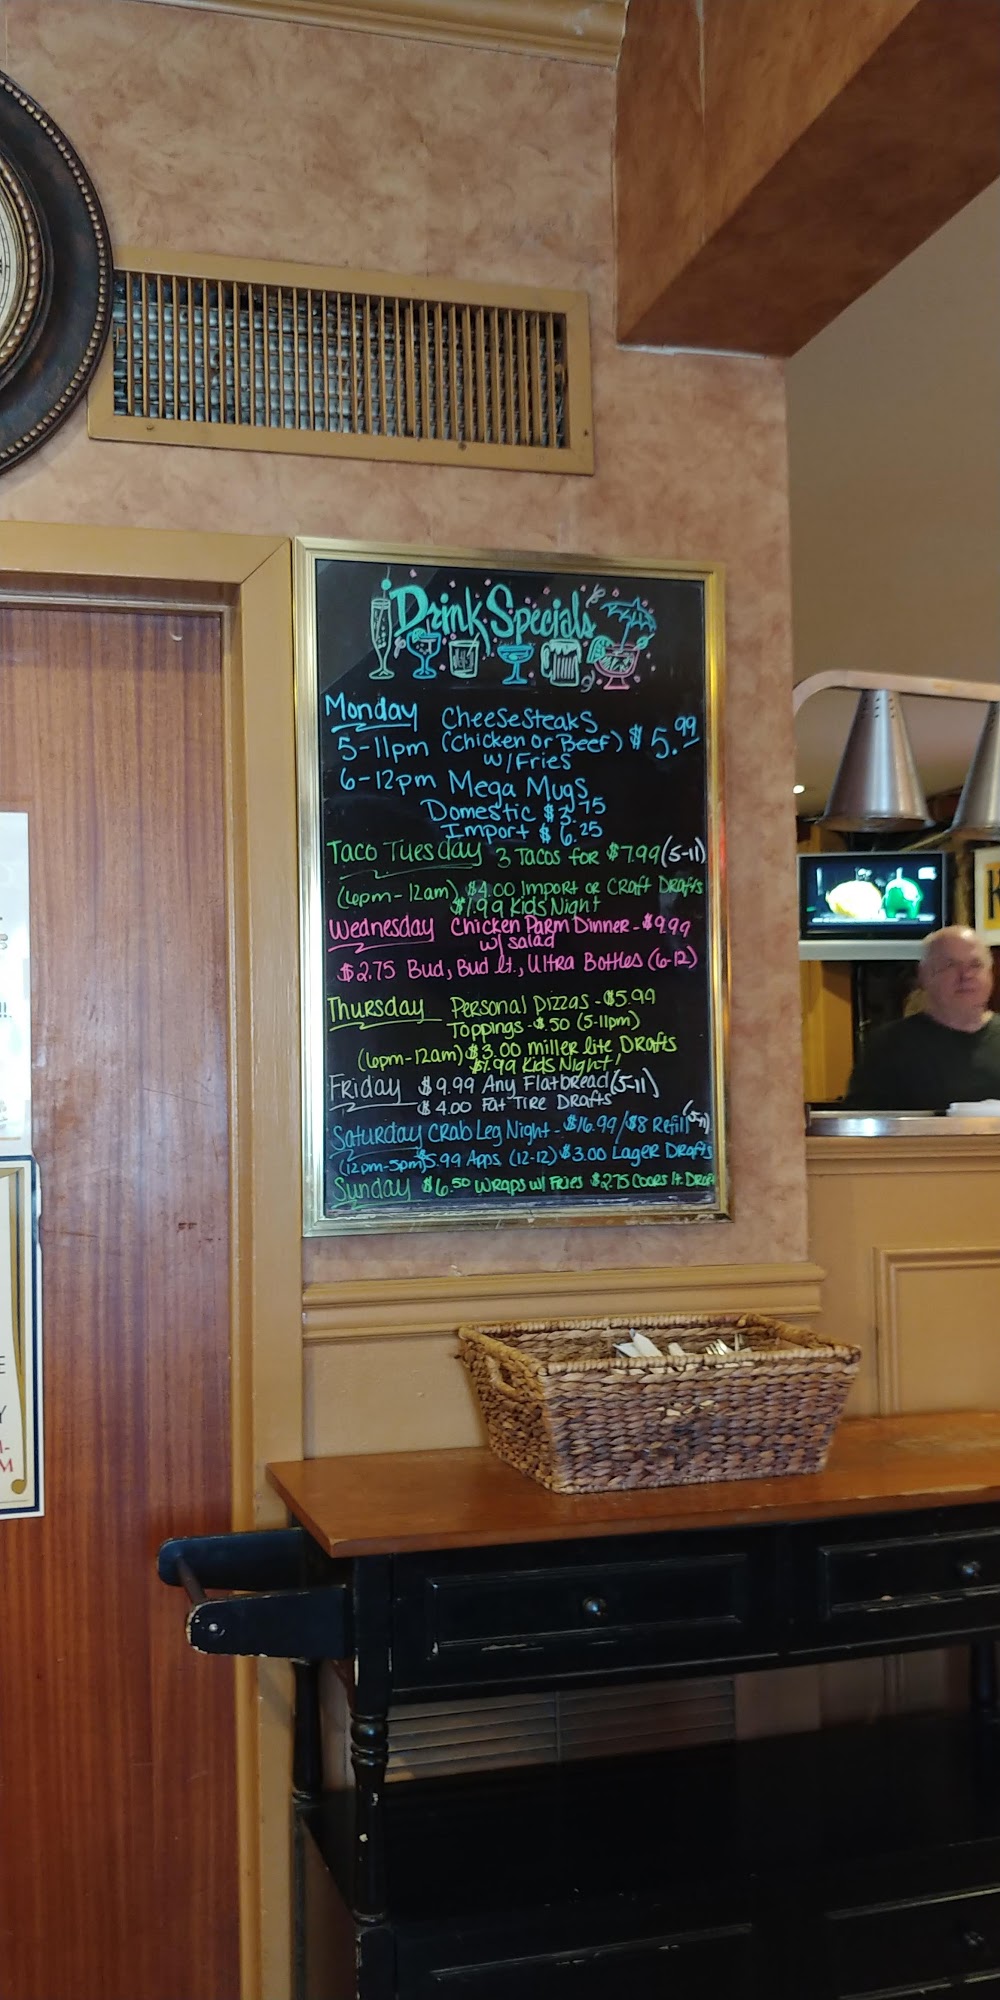 Drink Specials
Monday CheeseSteaks
5-11pm (Chicken or Beef) $5.99
w/Fries
6-12pm Mega Mugs
Domestic $3.75
Import $6.25
Taco Tuesday 3 Tacos for $7.99 (5-11)
(6pm-12am) $4.00 Import or Craft Drafts
$1.99 Kids Night
Wednesday Chicken Parm Dinner - $9.99
w/ salad
$2.75 Bud, Bud Lt., Ultra Bottles (6-12)
Thursday Personal Pizzas - $5.99
Toppings - $.50 (5-11pm)
(6pm-12am) $3.00 miller lite Drafts
$1.99 Kids Night!
Friday $9.99 Any Flatbread (5-11)
$4.00 Fat Tire Drafts
Saturday Crab Leg Night - $16.99/$8 Refill (5-11)
(12pm-5pm) $5.99 Apps (12-12) $3.00 Lager Drafts
Sunday $6.50 Wraps w/ Fries $2.75 Coors lt. Draft